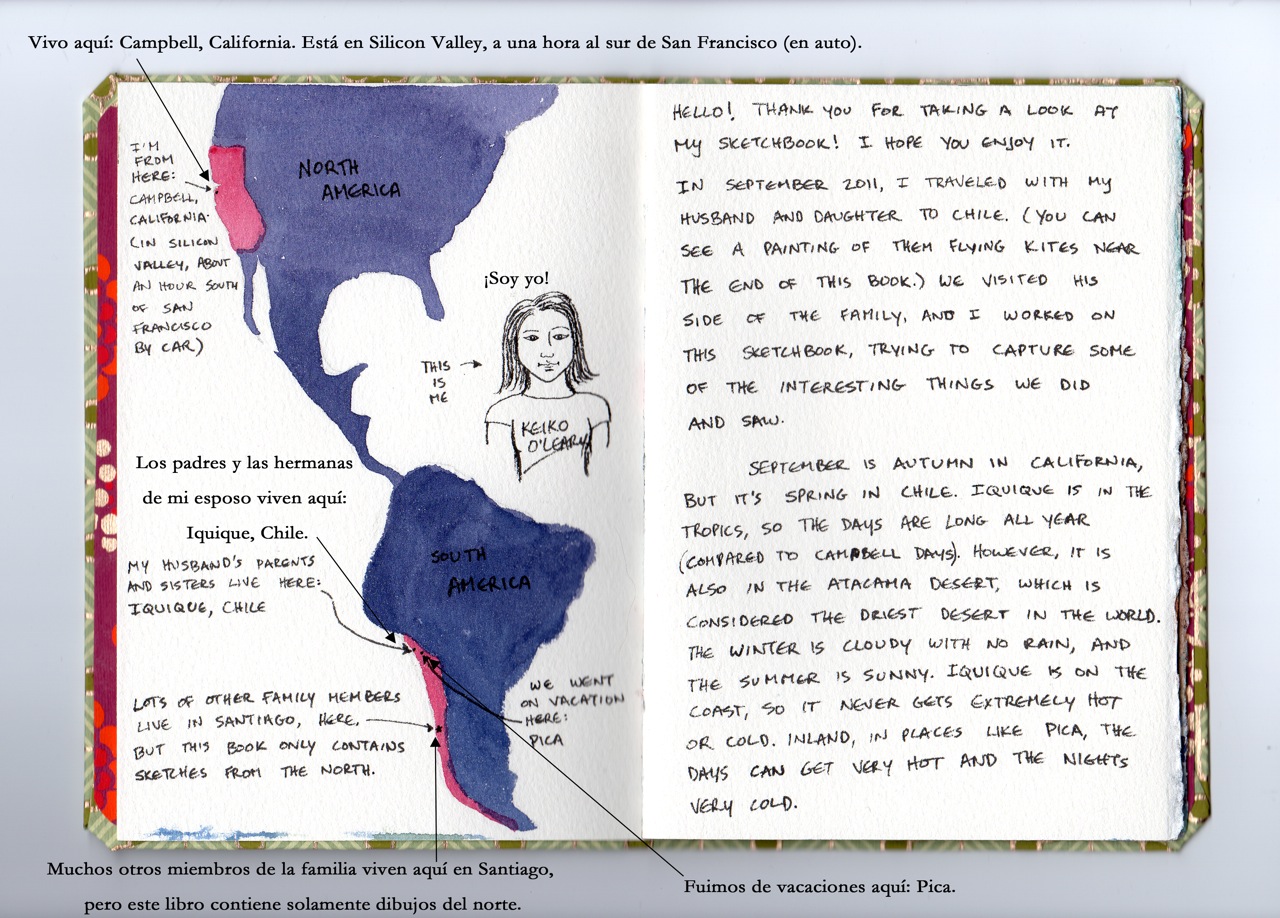 Vivo aquí: Campbell, California. Está en Silicon Valley, a una hora al sur de San Francisco (en auto).
I'M
FROM
HERE:
CAMPBELL,
CALIFORNIA.
(IN SILICON
VALLEY, ABOUT
AN HOUR SOUTH
OF SAN
FRANCISCO
BY CAR)
NORTH
AMERICA
¡Soy yo!
THIS
IS
ME
KEIKO
O'LEARY
Los padres y las hermanas
de mi esposo viven aquí:
Iquique, Chile.
MY HUSBAND'S PARENTS
AND SISTERS LIVE HERE:
IQUIQUE, CHILE
SOUTH
AMERICA
LOTS OF OTHER FAMILY MEMBERS
LIVE IN SANTIAGO, HERE,
BUT THIS BOOK ONLY CONTAINS
SKETCHES FROM THE NORTH.
WE WENT
ON VACATION
HERE:
PICA
Muchos otros miembros de la familia viven aquí en Santiago,
pero este libro contiene solamente dibujos del norte.
Fuimos de vacaciones aquí: Pica.
HELLO! THANK YOU FOR TAKING A LOOK AT
MY SKETCHBOOK! I HOPE YOU ENJOY IT.
IN SEPTEMBER 2011, I TRAVELED WITH MY
HUSBAND AND DAUGHTER TO CHILE. (YOU CAN
SEE A PAINTING OF THEM FLYING KITES NEAR
THE END OF THIS BOOK.) WE VISITED HIS
SIDE OF THE FAMILY, AND I WORKED ON
THIS SKETCHBOOK, TRYING TO CAPTURE SOME
OF THE INTERESTING THINGS WE DID
AND SAW.
SEPTEMBER IS AUTUMN IN CALIFORNIA,
BUT IT'S SPRING IN CHILE. IQUIQUE IS IN THE
TROPICS, SO THE DAYS ARE LONG ALL YEAR
(COMPARED TO CAMPBELL DAYS). HOWEVER, IT IS
ALSO IN THE ATACAMA DESERT, WHICH IS
CONSIDERED THE DRIEST DESERT IN THE WORLD.
THE WINTER IS CLOUDY WITH NO RAIN, AND
THE SUMMER IS SUNNY. IQUIQUE IS ON THE
COAST, SO IT NEVER GETS EXTREMELY HOT
OR COLD. INLAND, IN PLACES LIKE PICA, THE
DAYS CAN GET VERY HOT AND THE NIGHTS
VERY COLD.